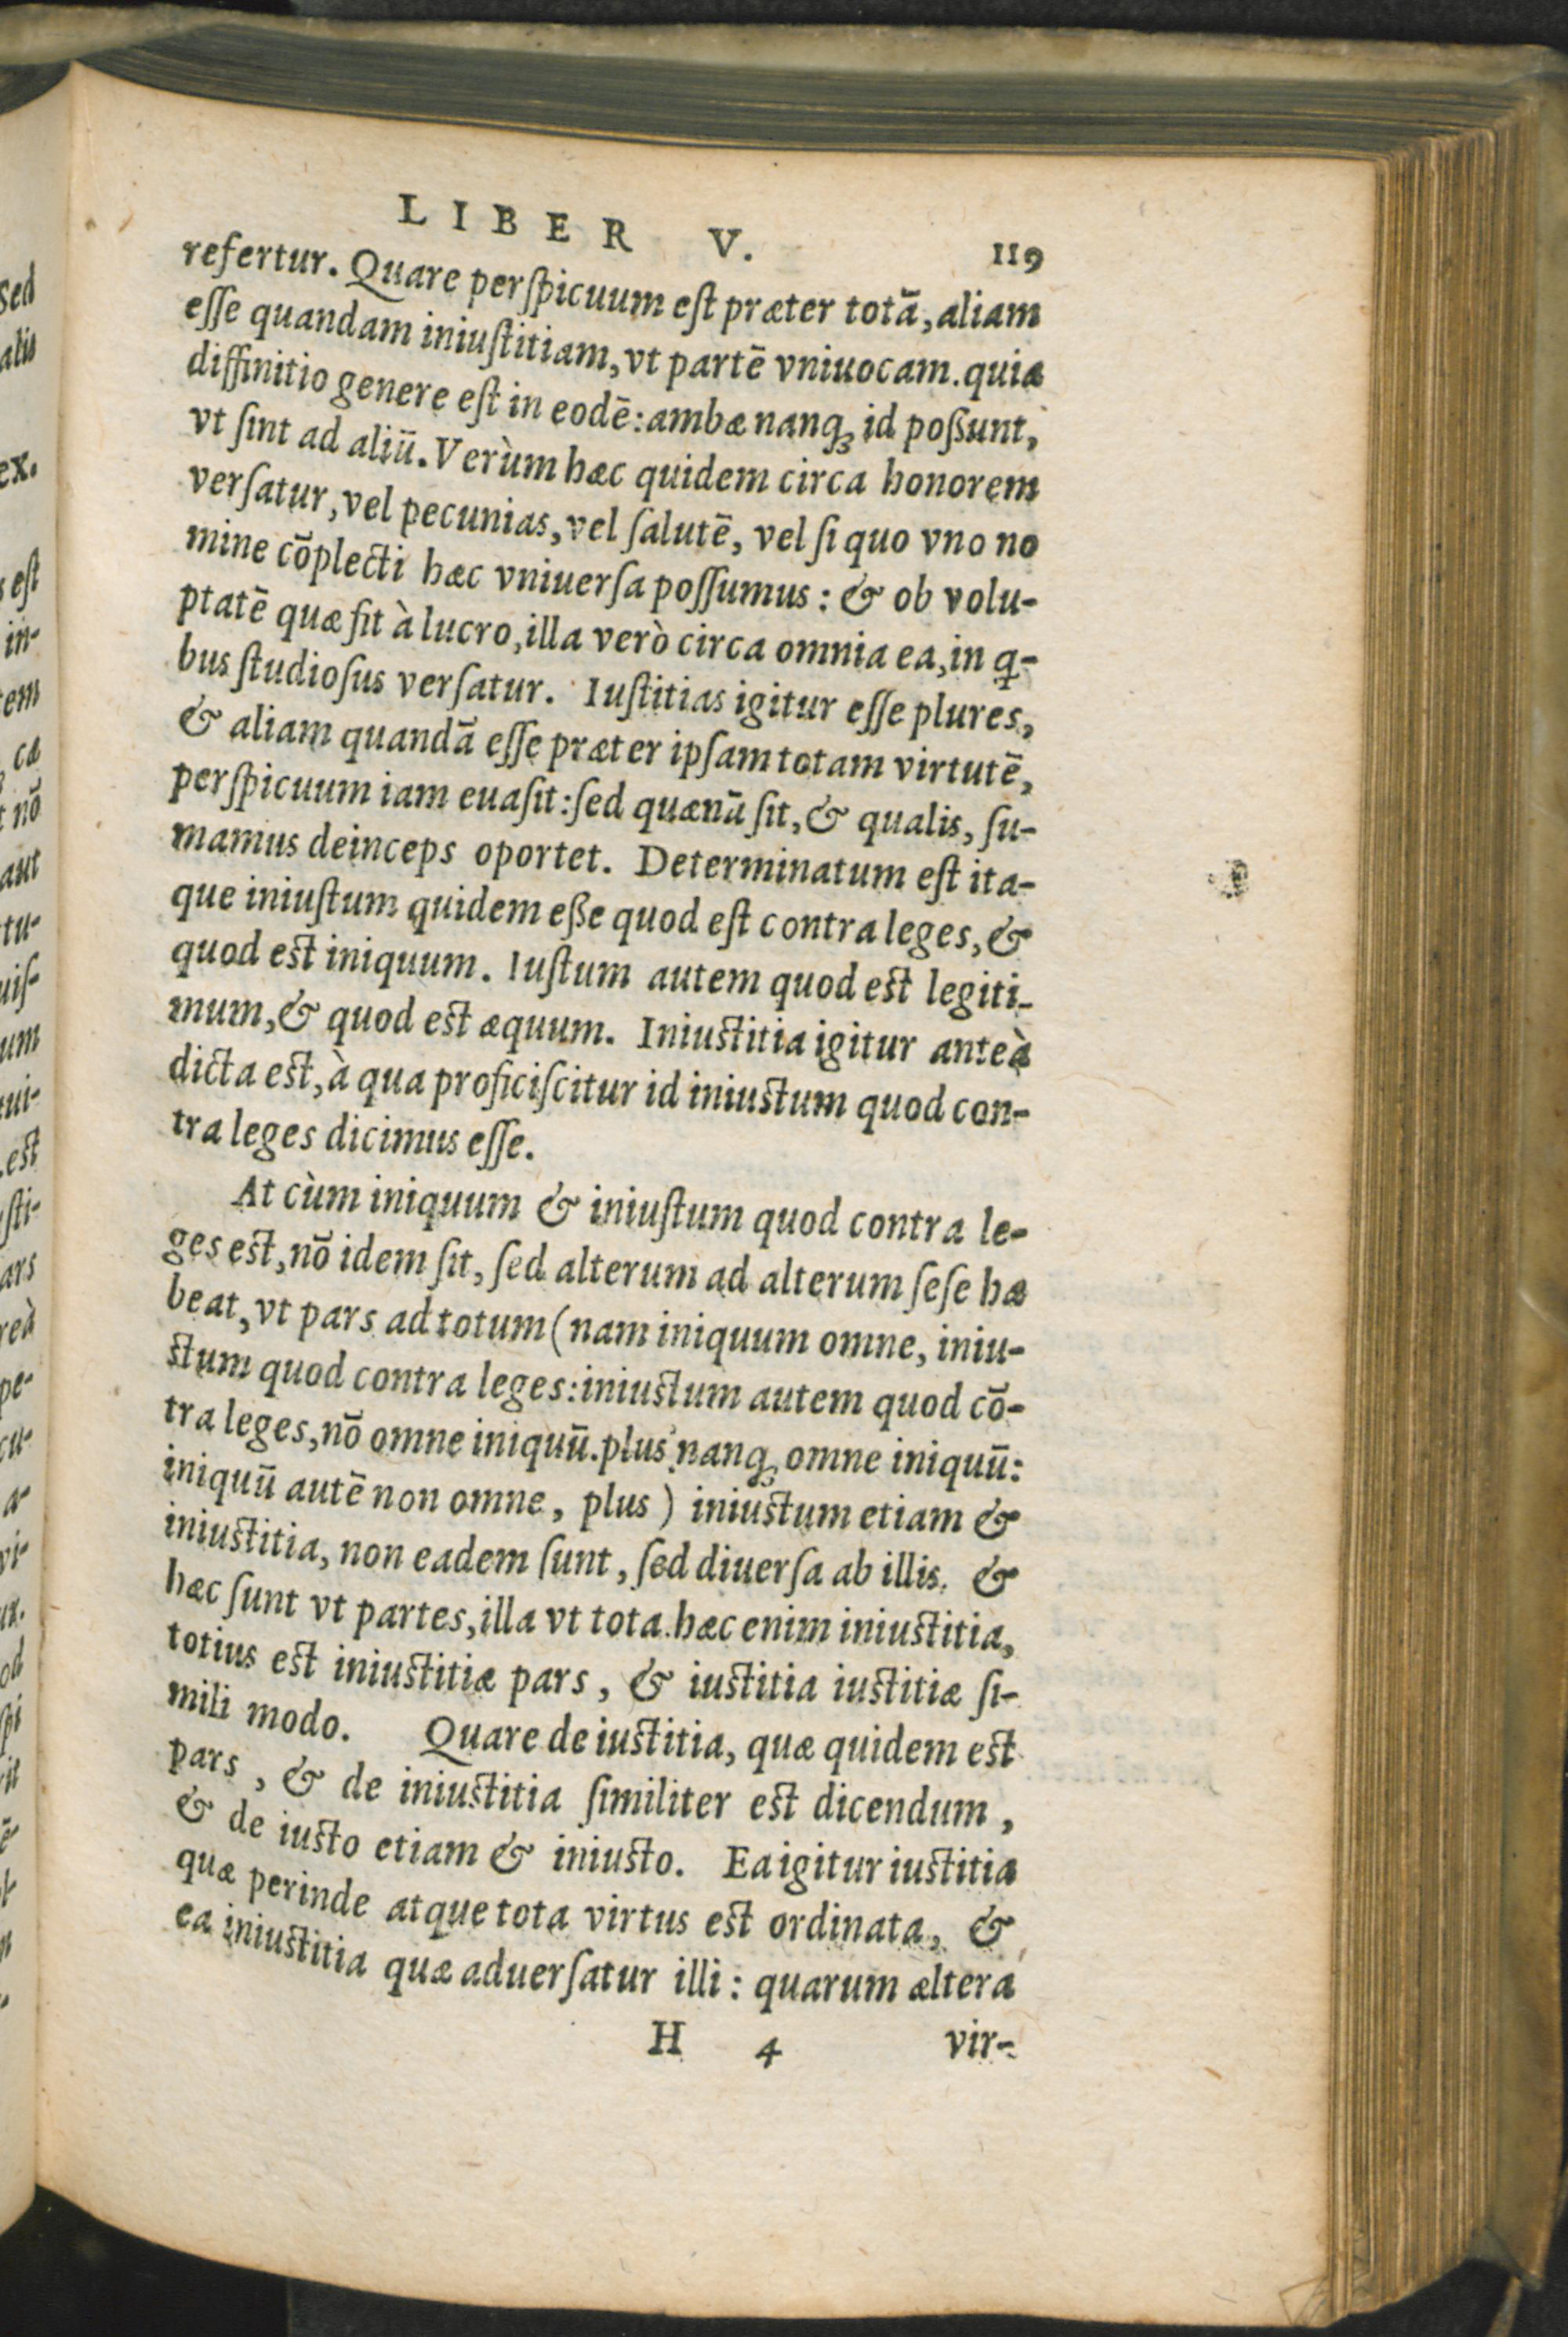 LIBER V. 119
refertur. Quare perſpicuum eſt præter totā, aliam
eſſe quandam iniuſtitiam, vt partē vniuocam. quia
diffinitio genere eſt in eodē: ambæ nanq; id poßunt,
vt ſint ad aliū. Verùm hæc quidem circa honorem
verſatur, vel pecunias, vel ſalutē, vel ſi quo vno no
mine cōplecti hæc vniuerſa poſſumus: & ob volu-
ptatē quæ fit à lucro, illa verò circa omnia ea, in q̄-
bus ſtudioſus verſatur. Iuſtitias igitur eſſe plures,
& aliam quandā eſſe præter ipſam totam virtutē,
perſpicuum iam euaſit: ſed quænā ſit, & qualis, ſu-
mamus deinceps oportet. Determinatum eſt ita-
que iniuſtum quidem eße quod eſt contra leges, &
quod eſt iniquum. Iuſtum autem quod eſt legiti-
mum, & quod eſt æquum. Iniuſtitia igitur anteà
dicta eſt, à qua proficiſcitur id iniuſtum quod con-
tra leges dicimus eſſe.
At cùm iniquum & iniuſtum quod contra le-
ges eſt, nō idem ſit, ſed alterum ad alterum ſeſe ha
beat, vt pars ad totum (nam iniquum omne, iniu-
ſtum quod contra leges: iniuſtum autem quod cō-
tra leges, nō omne iniquū. plus nanq; omne iniquū:
iniquū autē non omne, plus) iniuſtum etiam &
iniuſtitia, non eadem ſunt, ſed diuerſa ab illis. &
hæc ſunt vt partes, illa vt tota. hæc enim iniuſtitia,
totius eſt iniuſtitiæ pars, & iuſtitia iuſtitiæ ſi-
mili modo. Quare de iuſtitia, quæ quidem eſt
pars, & de iniuſtitia ſimiliter eſt dicendum,
& de iuſto etiam & iniuſto. Ea igitur iuſtitia
quæ perinde atque tota virtus eſt ordinata, &
ea iniuſtitia quæ aduerſatur illi: quarum altera
H 4 vir-